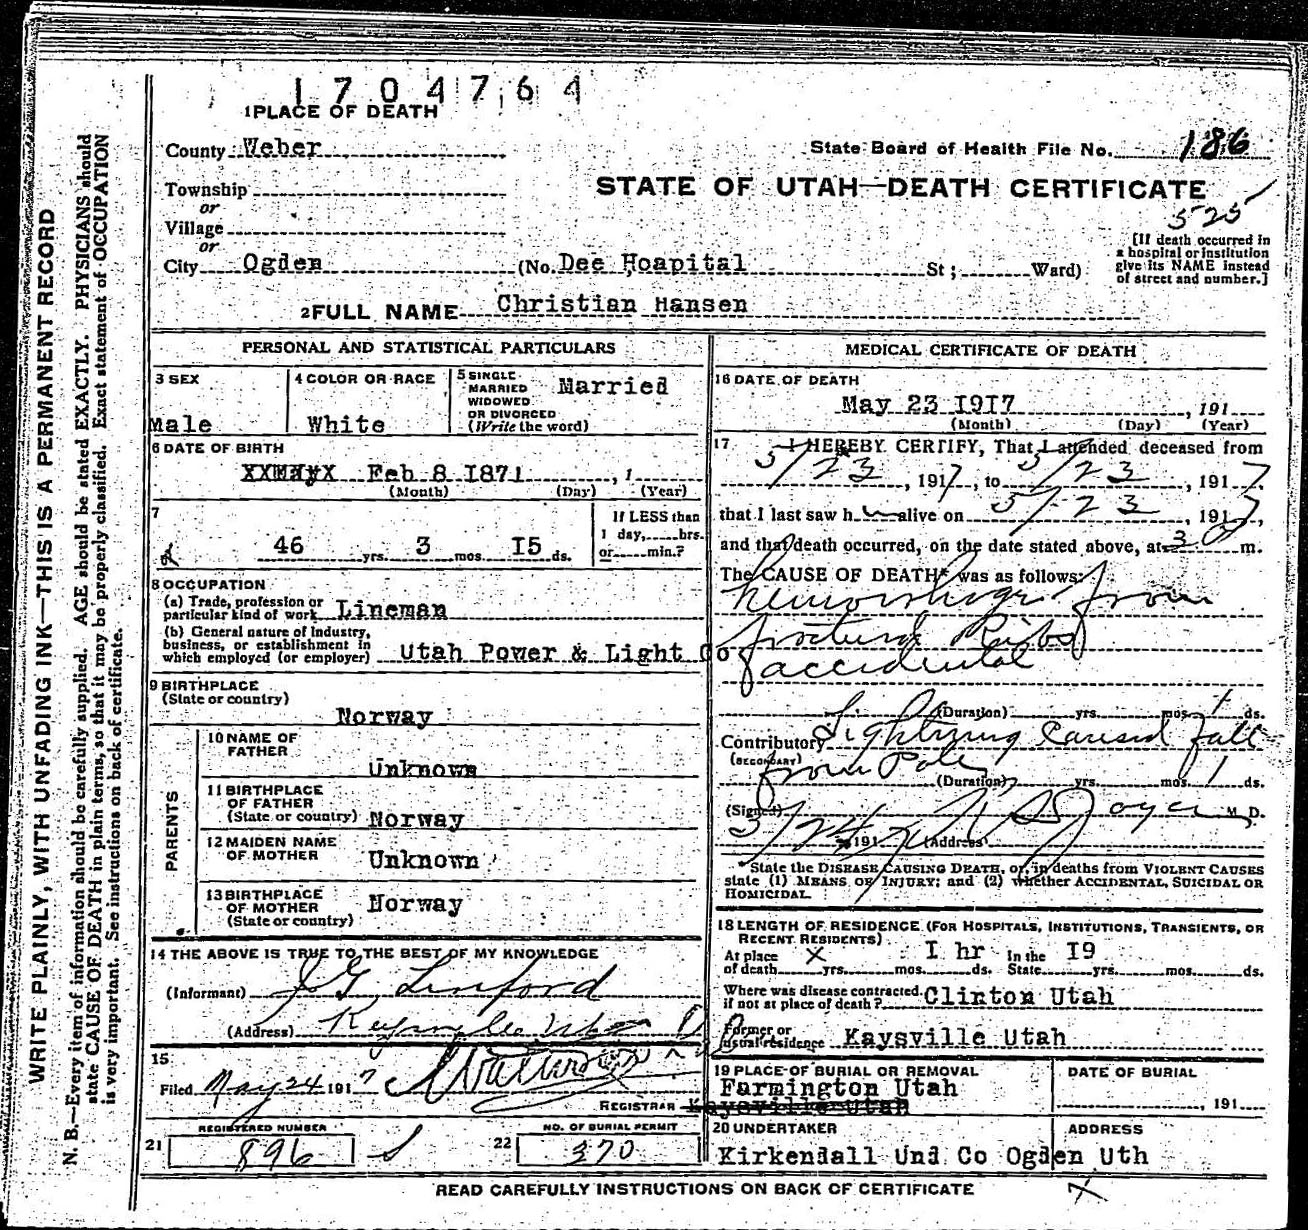 1704764
1 PLACE OF DEATH
County Weber
State Board of Health File No. 186
Township
or
STATE OF UTAH—DEATH CERTIFICATE
525
Village
or
City Ogden (No. Dee Hoapital St; Ward)
[If death occurred in
a hospital or institution
give its NAME instead
of street and number.]
2 FULL NAME Christian Hansen
PERSONAL AND STATISTICAL PARTICULARS
3 SEX
Male
4 COLOR OR RACE
White
5 SINGLE
MARRIED
WIDOWED
OR DIVORCED
(Write the word)
Married
6 DATE OF BIRTH
XXMayX Feb 8 1871, 1
(Month) (Day) (Year)
7
46 yrs. 3 mos. I5 ds.
If LESS than
1 day, hrs.
or min.?
8 OCCUPATION
(a) Trade, profession or
particular kind of work Lineman
(b) General nature of Industry,
business, or establishment in
which employed (or employer) Utah Power & Light Co
9 BIRTHPLACE
(State or country)
Norway
PARENTS
10 NAME OF
FATHER
Unknown
11 BIRTHPLACE
OF FATHER
(State or country) Norway
12 MAIDEN NAME
OF MOTHER
Unknown
13 BIRTHPLACE
OF MOTHER
(State or country)
Norway
14 THE ABOVE IS TRUE TO THE BEST OF MY KNOWLEDGE
(Informant) J G Linford
(Address) Kaysville Utah
15
Filed May 24 1917
REGISTRAR
REGISTERED NUMBER
21 896
NO. OF BURIAL PERMIT
22 370
MEDICAL CERTIFICATE OF DEATH
16 DATE OF DEATH
May 23 I9I7, 191
(Month) (Day) (Year)
17 I HEREBY CERTIFY, That I attended deceased from
5/23, 1917, to 5/23, 1917,
that I last saw him alive on 5/23, 1917,
and that death occurred, on the date stated above, at 3 P m.
The CAUSE OF DEATH* was as follows:
hemorrhage from
fractured Ribs
accidental
(Duration) yrs. mos. 1 ds.
Contributory Lightning caused fall
(SECONDARY)
from Pole
(Duration) yrs. mos. 1 ds.
(Signed) Joyce M. D.
5/24 191 7 (Address)
State the DISEASE CAUSING DEATH, or, in deaths from VIOLENT CAUSES
state (1) MEANS OF INJURY; and (2) whether ACCIDENTAL, SUICIDAL OR
HOMICIDAL.
18 LENGTH OF RESIDENCE (FOR HOSPITALS, INSTITUTIONS, TRANSIENTS, OR
RECENT RESIDENTS)
At place X I hr In the I9
of death yrs. mos. ds. State yrs. mos. ds.
Where was disease contracted,
if not at place of death? Clinton Utah
Former or
usual residence Kaysville Utah
19 PLACE OF BURIAL OR REMOVAL
Farmington Utah
Kaysville Utah
DATE OF BURIAL
, 191
20 UNDERTAKER
ADDRESS
Kirkendall Und Co Ogden Uth
READ CAREFULLY INSTRUCTIONS ON BACK OF CERTIFICATE
WRITE PLAINLY, WITH UNFADING INK—THIS IS A PERMANENT RECORD
N. B.—Every item of information should be carefully supplied. AGE should be stated EXACTLY. PHYSICIANS should
state CAUSE OF DEATH in plain terms, so that it may be properly classified. Exact statement of OCCUPATION
is very important. See instructions on back of certificate.